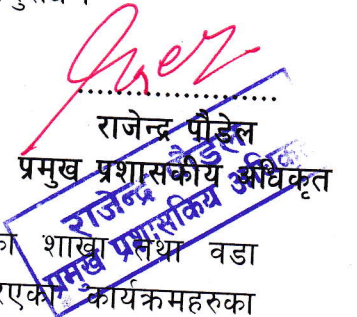 राजेन्द्र पौडेल
प्रमुख प्रशासकीय अधिकृत
राजेन्द्र पौडेल
प्रमुख प्रशासकिय अधिकृत
शाखा तथा वडा
कार्यक्रमहरुका